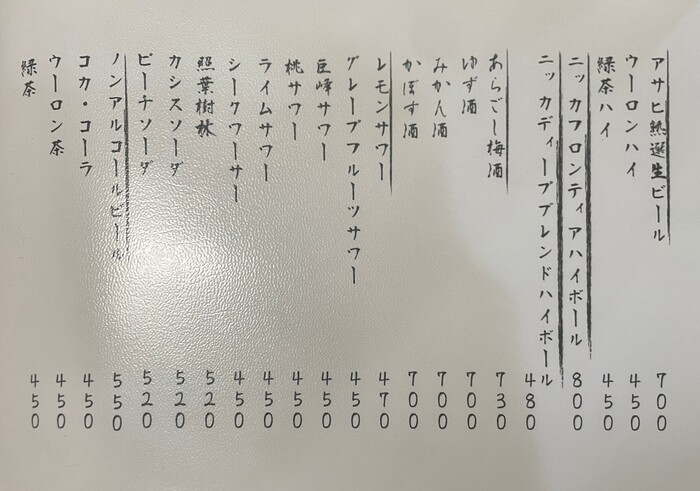 アサヒ熟選生ビール 700
ウーロンハイ 450
緑茶ハイ 450
ニッカフロンティアハイボール 800
ニッカディープブレンドハイボール 480
あらごし梅酒 730
ゆず酒 700
みかん酒 700
かぼす酒 700
レモンサワー 470
グレープフルーツサワー 450
巨峰サワー 450
桃サワー 450
ライムサワー 450
シークワーサー 450
照葉樹林 520
カシスソーダ 520
ピーチソーダ 520
ノンアルコールビール 550
コカ・コーラ 450
ウーロン茶 450
緑茶 450